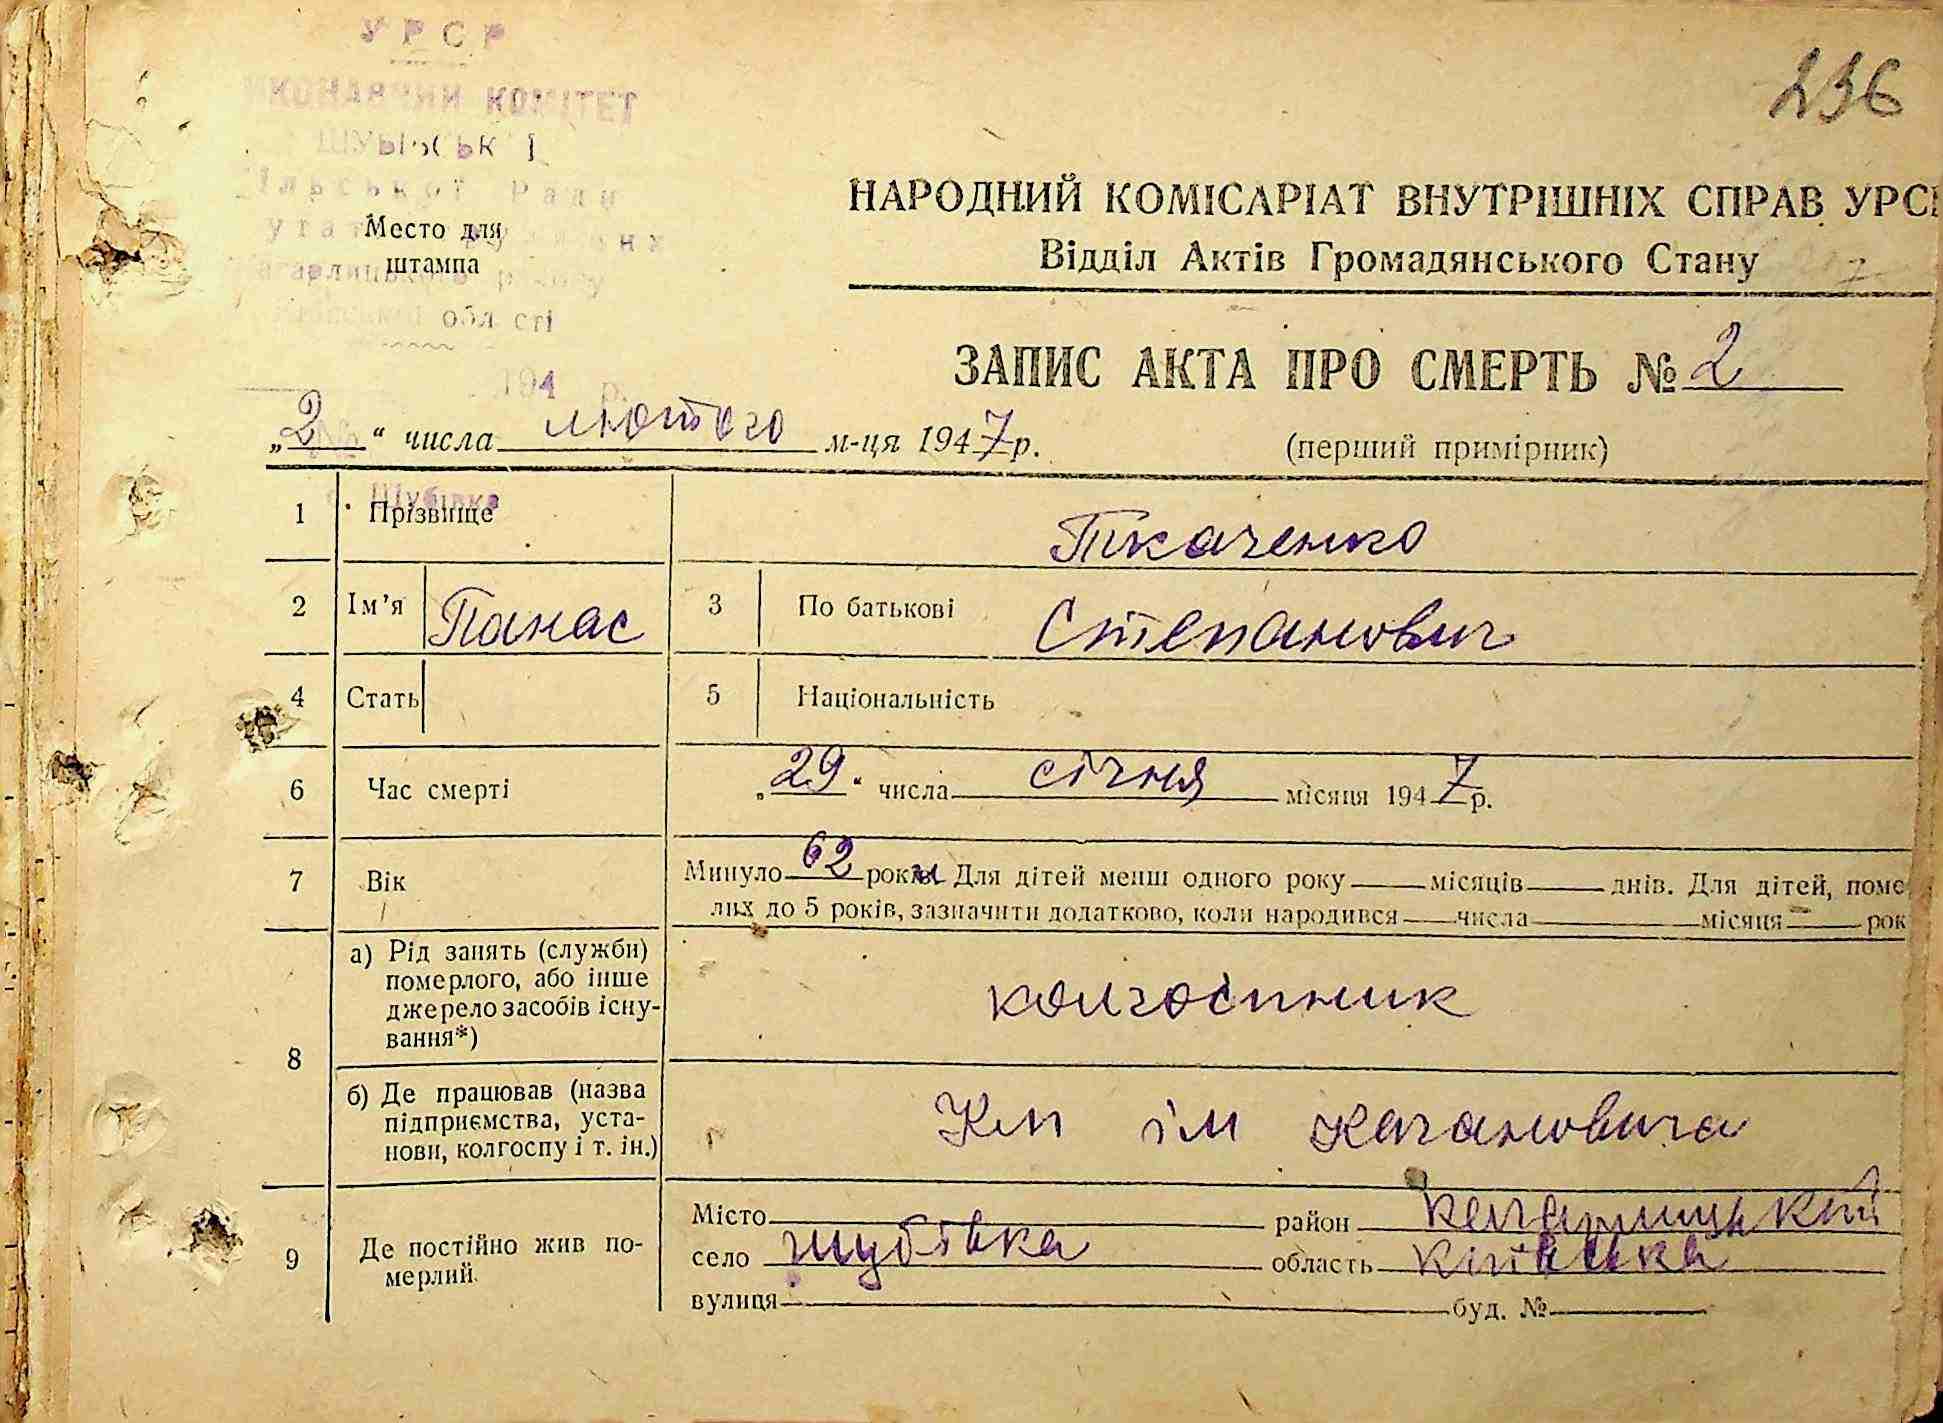 УРСР
ИКОНАВЧИЙ КОМІТЕТ
236
НАРОДНИЙ КОМІСАРІАТ ВНУТРІШНІХ СПРАВ УРС
Відділ Актів Громадянського Стану
Ради
Место для
штампа
області
194 р.
ЗАПИС АКТА ПРО СМЕРТЬ № 2
„2“ числа лютого м-ця 1947 р.
(перший примірник)
с. Шубівка
1 Прізвище Ткаченко
2 Ім'я Панас 3 По батькові Степанович
4 Стать 5 Національність
6 Час смерті „29“ числа січня місяця 1947 р.
7 Вік Минуло 62 років. Для дітей менш одного року місяців днів. Для дітей, поме
лих до 5 років, зазначити додатково, коли народився числа місяця рок
8 а) Рід занять (служби)
померлого, або інше
джерело засобів існу-
вання*)
колгоспник
б) Де працював (назва
підприємства, уста-
нови, колгоспу і т. ін.)
Кл ім Кагановича
9 Де постійно жив по-
мерлий.
Місто район Кагарлицький
село Шубівка область Київська
вулиця буд. №